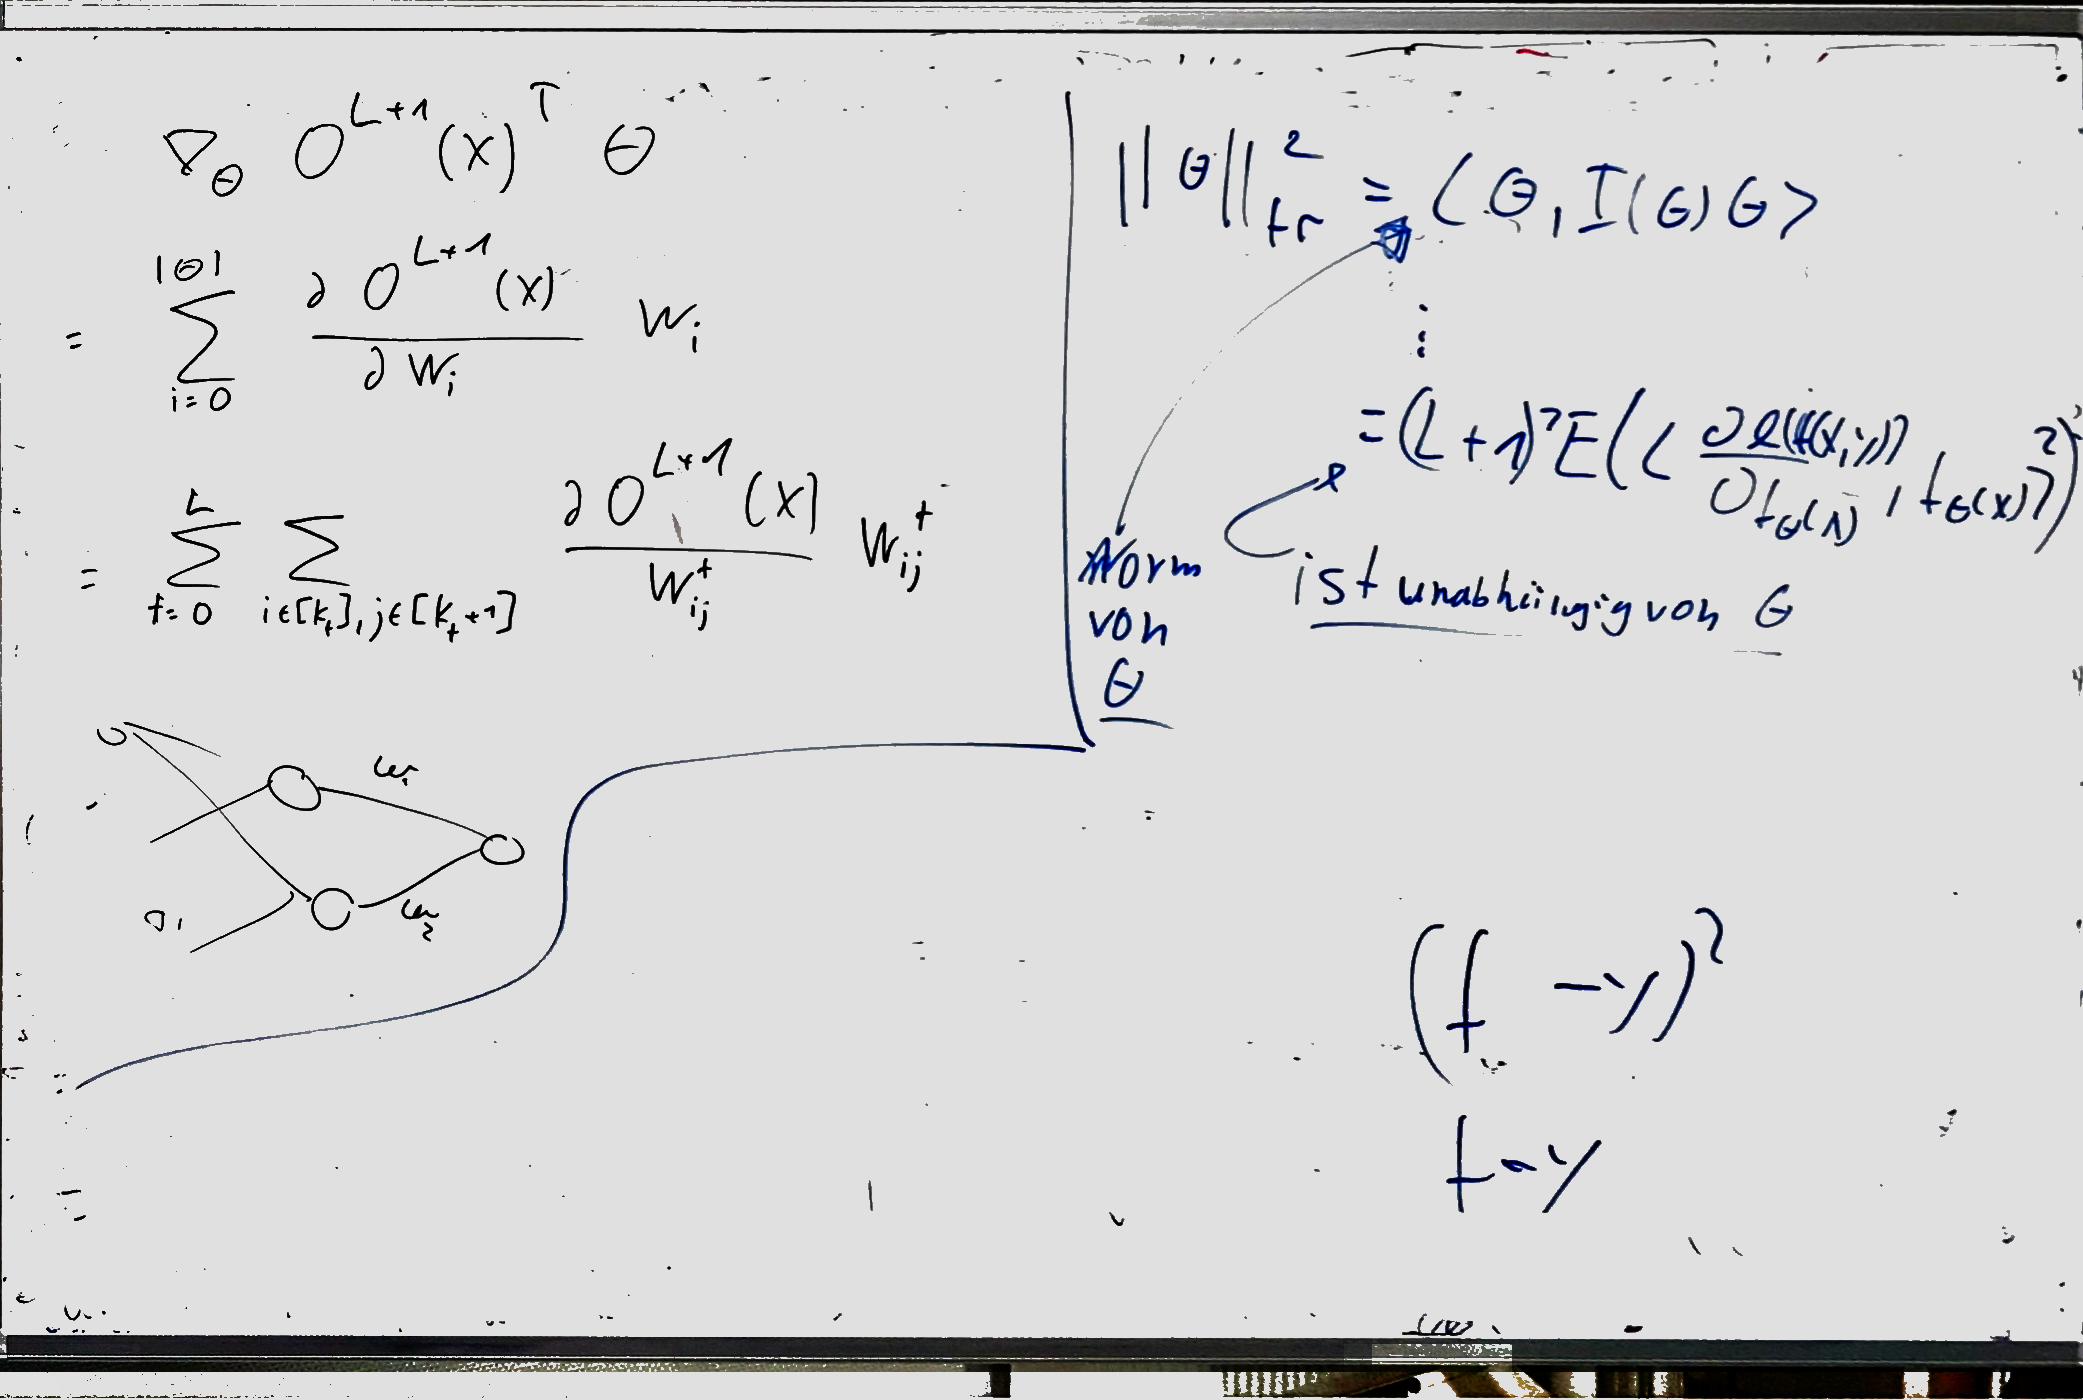 ∇_θ O^{L+1}(x)^T θ
= ∑_{i=0}^{|θ|} ∂O^{L+1}(x) / ∂W_i W_i
= ∑_{t=0}^{L} ∑_{i∈[k_t], j∈[k_t+1]} ∂O^{L+1}(x) / W_{ij}^t W_{ij}^t
w_1
w_2
||θ||_{fr}^2 = ⟨θ, I(θ)θ⟩
⋮
= (L+1)^2 E(⟨∂l(f(x,y)) / ∂f_θ(x), f_θ(x)⟩^2)
Norm
von
θ
ist unabhängig von θ
(f - y)^2
f - y